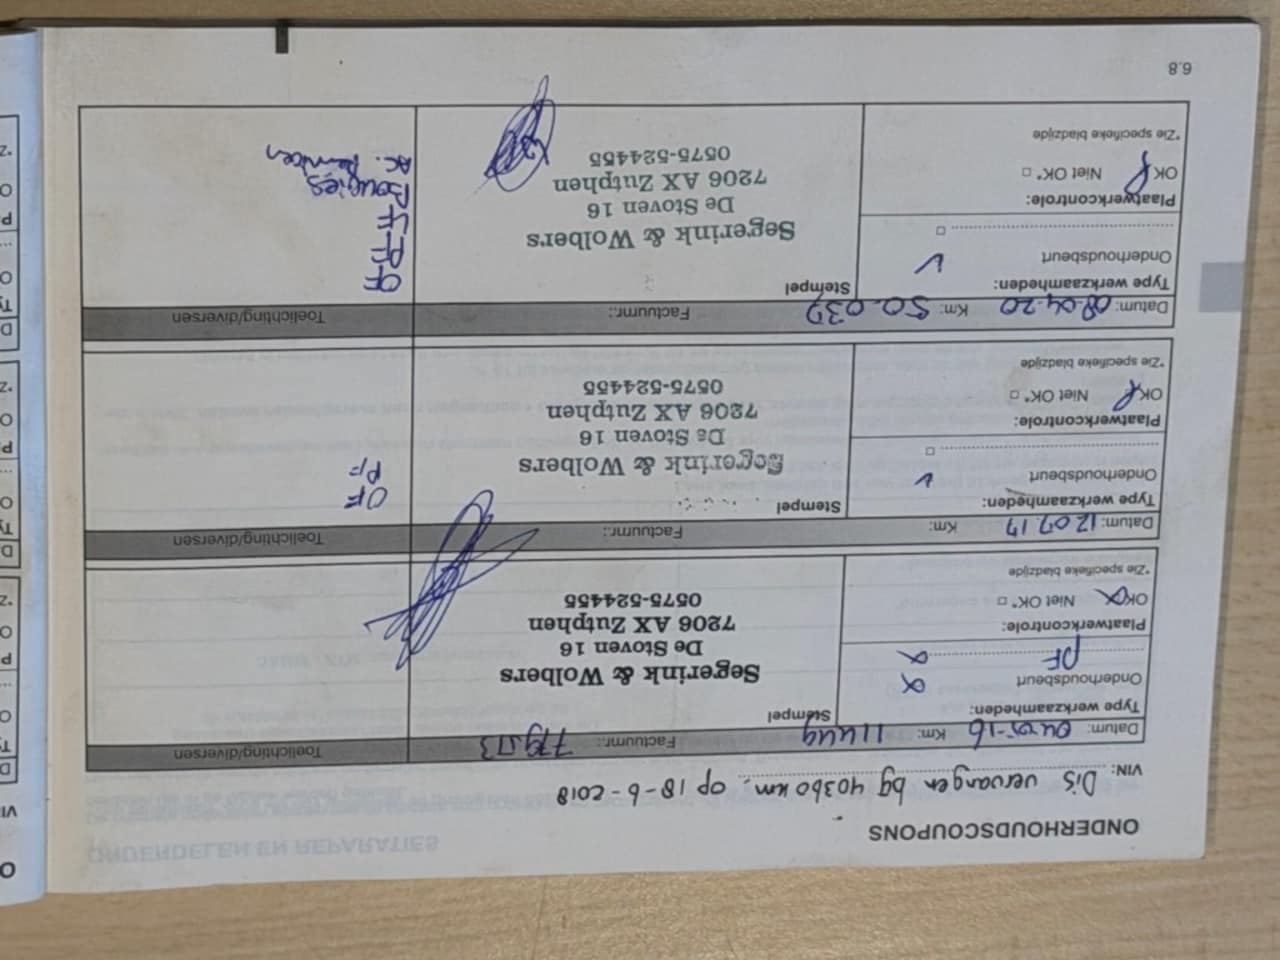 ONDERHOUDSCOUPONS
VIN: Dis vervangen bij 40360 km. op 18-6-2018
Datum: Km: 11449 Factuurnr.: Toelichting/diversen
Type werkzaamheden: Stempel
Onderhoudsbeurt
PF
Plaatwerkcontrole:
OK Niet OK* □
*Zie specifieke bladzijde
Segerink & Wolbers
De Stoven 16
7206 AX Zutphen
0575-524455
Datum: 12.07.17 Km: Factuurnr.: Toelichting/diversen
Type werkzaamheden: Stempel
Onderhoudsbeurt
Plaatwerkcontrole:
OK Niet OK* □
*Zie specifieke bladzijde
Segerink & Wolbers
De Stoven 16
7206 AX Zutphen
0575-524455
OF
PF
Datum: 08.04.20 Km: 50.039 Factuurnr.: Toelichting/diversen
Type werkzaamheden: Stempel
Onderhoudsbeurt
Plaatwerkcontrole:
OK Niet OK* □
*Zie specifieke bladzijde
Segerink & Wolbers
De Stoven 16
7206 AX Zutphen
0575-524455
OF
PF
FF
Bougies
6.8